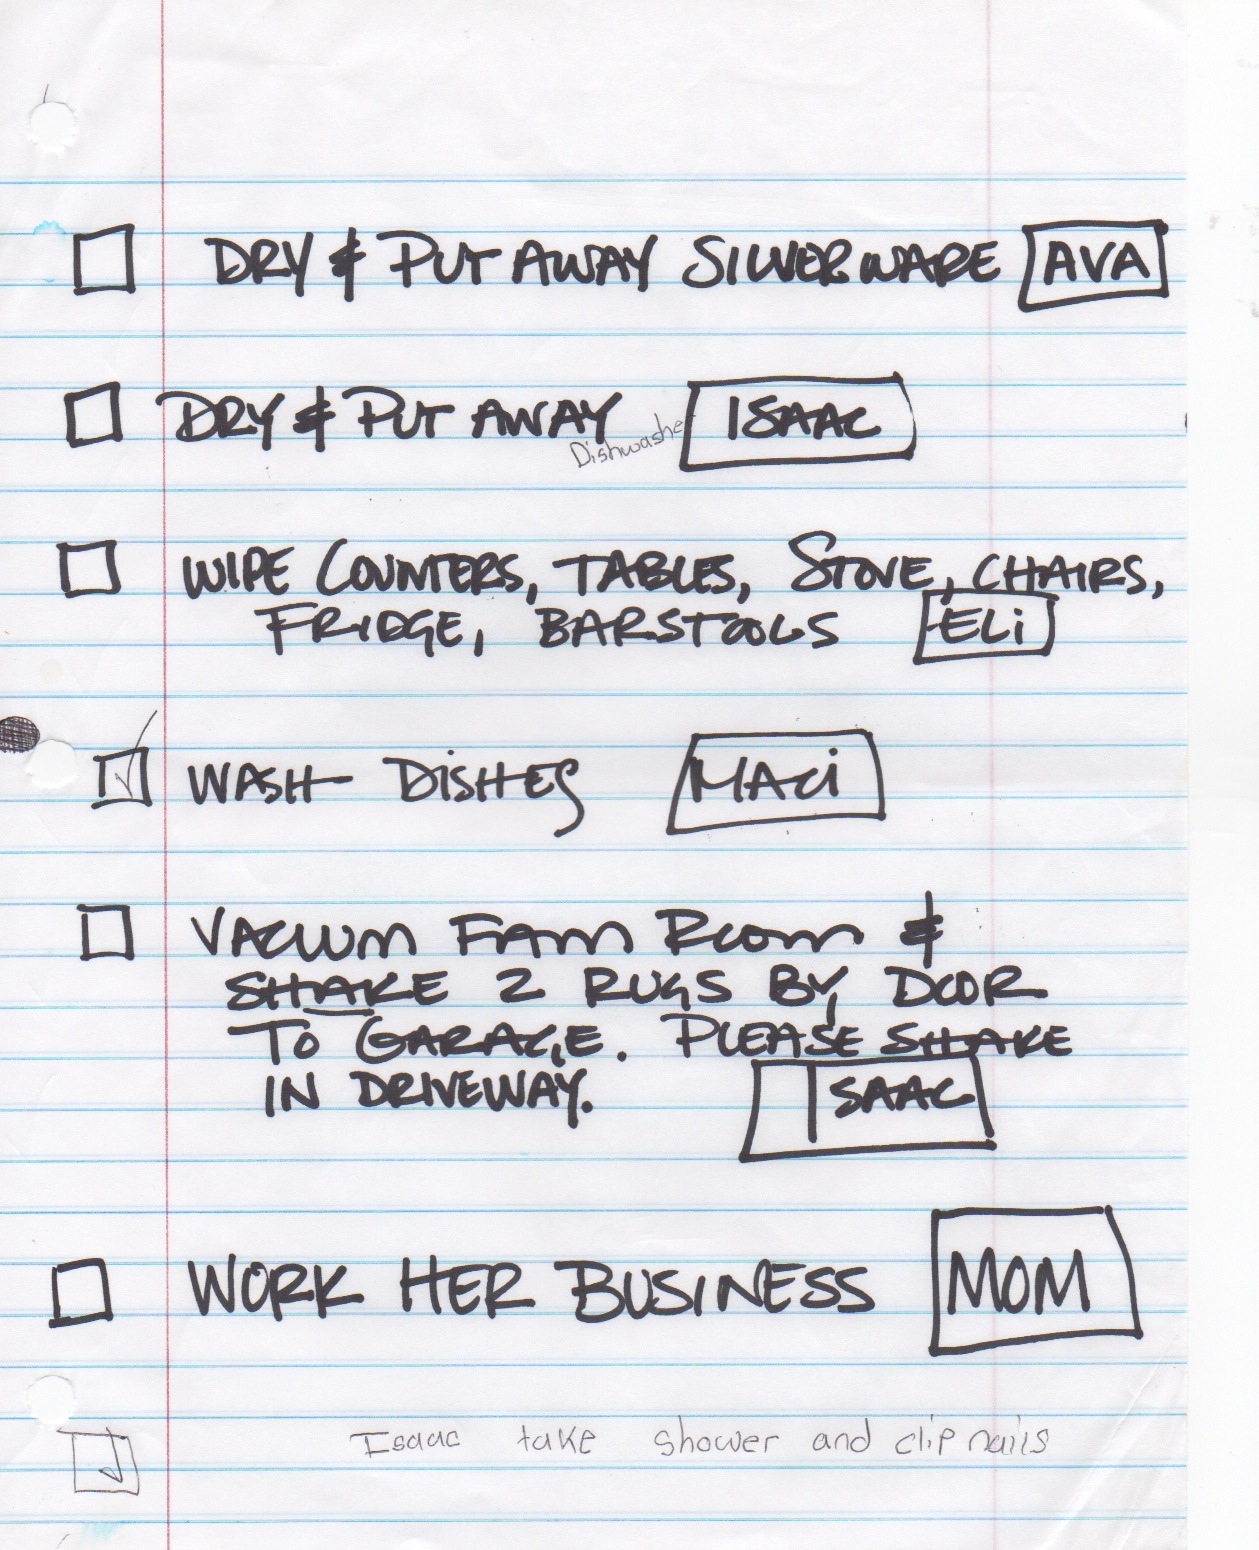 DRY & PUT AWAY SILVERWARE AVA
DRY & PUT AWAY ISAAC
Dishwasher
WIPE COUNTERS, TABLES, STOVE, CHAIRS,
FRIDGE, BARSTOOLS ELi
WASH DiSHES MACi
VACUUM FAM ROOM &
SHAKE 2 RUGS BY DOOR
TO GARAGE. PLEASE SHAKE
IN DRIVEWAY. ISAAC
WORK HER BUSINESS MOM
Isaac take shower and clip nails